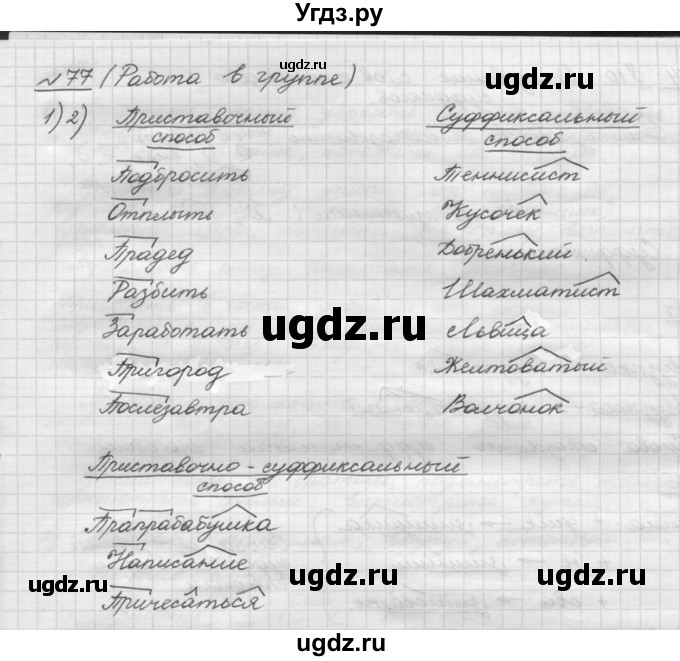 Угдз.ру
№77 (Работа в группе)
ugdz.ru
1) 2) Приставочный способ
Суффиксальный способ
Подбросить Теннисист
Отплыть Кусочек
ugdz.ru ugdz.ru
Прадед Добренький.
Разбить Шахматист
Заработать ugdz.ru Львица
Пригород Желтоватый
Послезавтра Волчонок
ugdz.ru
Приставочно-суффиксальный
способ
Прапрабабушка
Написание
ugdz.ru ugdz.ru ugdz.ru
Причесаться
ugdz.ru